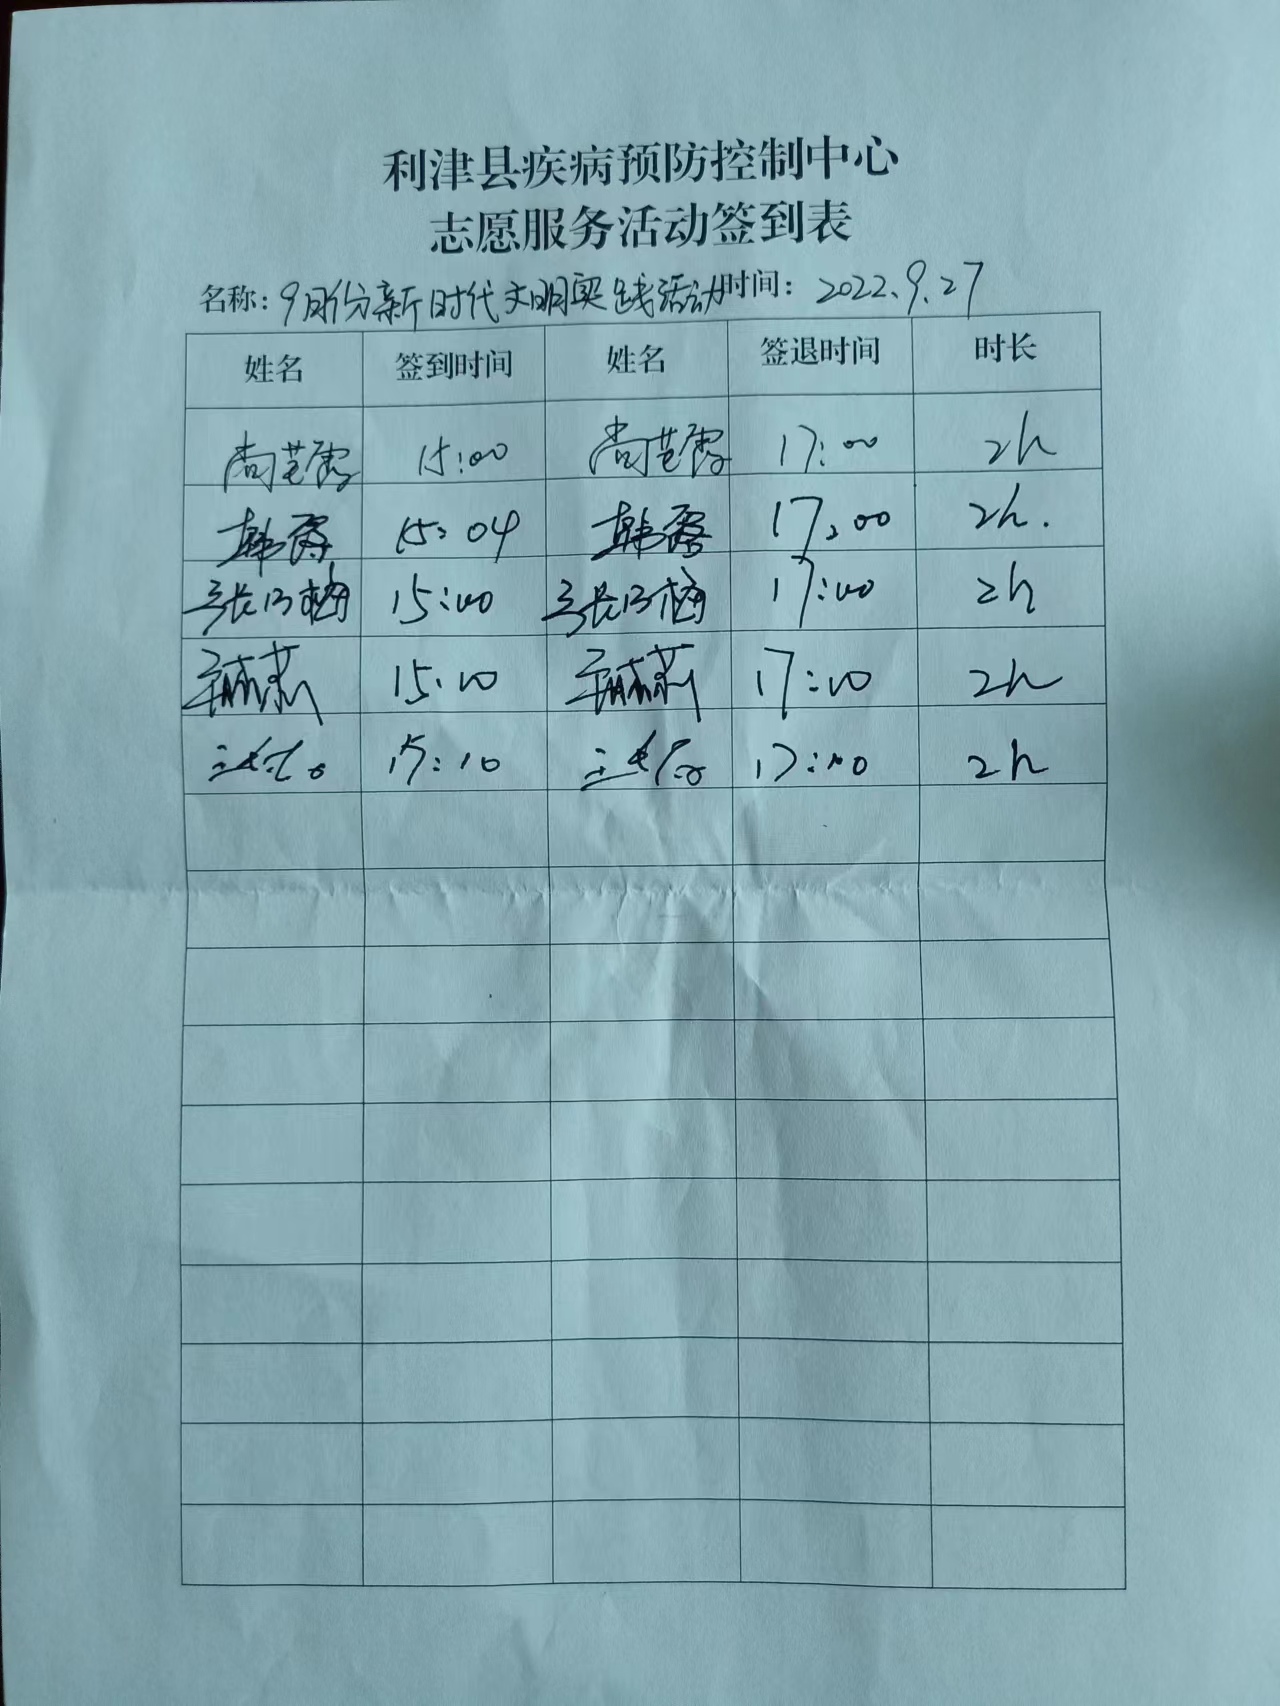 利津县疾病预防控制中心
志愿服务活动签到表
名称：9月份新时代文明实践活动 时间：2022.9.27
姓名 签到时间 姓名 签退时间 时长
尚 霞 15:00 尚 霞 17:00 2h
韩霞 15:04 韩霞 17:00 2h.
张 梅 15:00 张 梅 17:00 2h
莉 15:10 莉 17:10 2h
15:10 2h